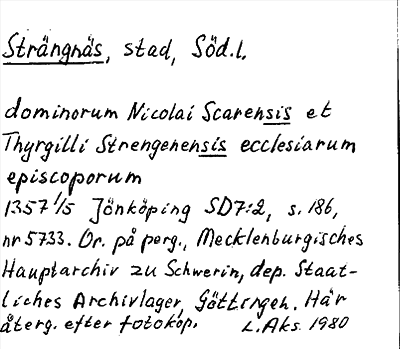 Strängnäs, stad, Söd.l.
dominorum Nicolai Scarensis et
Thyrgilli Strengenensis ecclesiarum
episcoporum
1357 1/5 Jönköping SD7:2, s. 186,
nr 5733. Or. på perg., Mecklenburgisches
Hauptarchiv zu Schwerin, dep. Staat-
liches Archivlager, Göttingen. Här
återg. efter fotokop. L.Aks. 1980